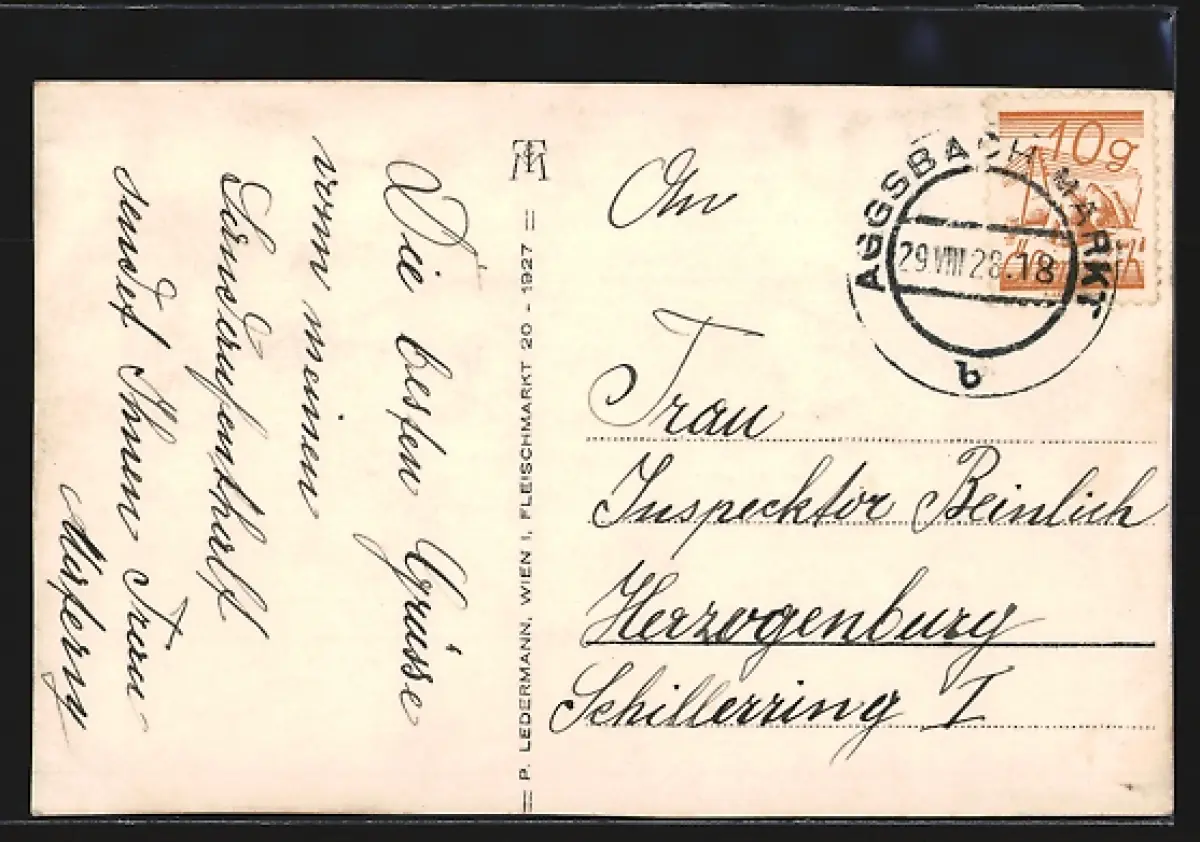 Die besten Grüsse
vom meinen
Landaufenthalt
sendet Ihnen Frau
P. LEDERMANN, WIEN I, FLEISCHMARKT 20 - 1927
An
Frau
Inspecktor Beinlich
Herzogenburg
Schillerring I
10g
Österreich
AGGSBACH MARKT
29.VIII 28.18
b